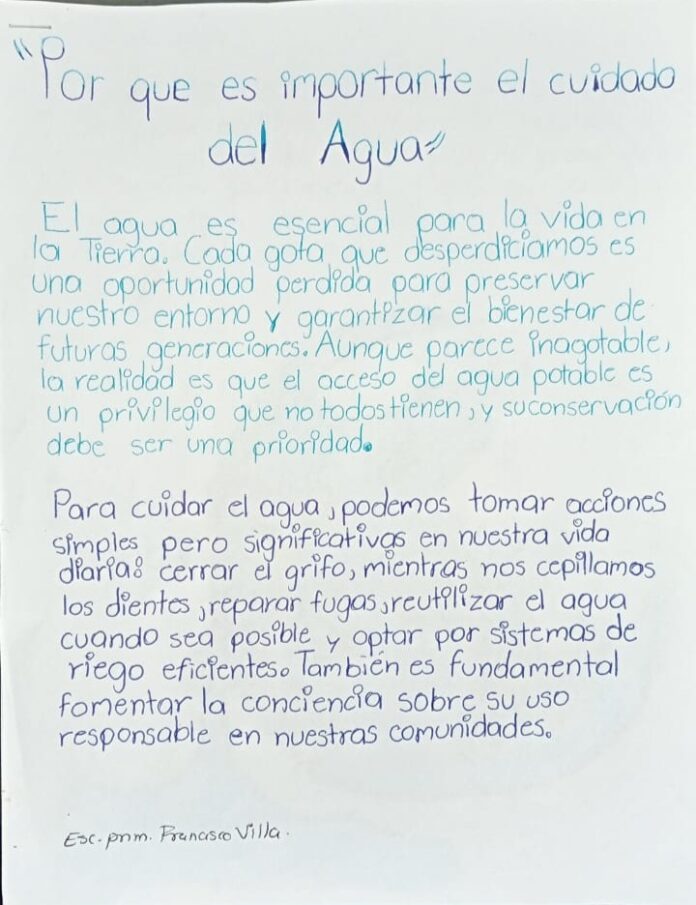 "Por que es importante el cuidado
del Agua"
El agua es esencial para la vida en
la Tierra. Cada gota que desperdiciamos es
una oportunidad perdida para preservar
nuestro entorno y garantizar el bienestar de
futuras generaciones. Aunque parece inagotable,
la realidad es que el acceso del agua potable es
un privilegio que no todos tienen, y su conservación
debe ser una prioridad.
Para cuidar el agua, podemos tomar acciones
simples pero significativas en nuestra vida
diaria: cerrar el grifo, mientras nos cepillamos
los dientes, reparar fugas, reutilizar el agua
cuando sea posible y optar por sistemas de
riego eficientes. También es fundamental
fomentar la conciencia sobre su uso
responsable en nuestras comunidades.
Esc. prim. Francisco Villa.